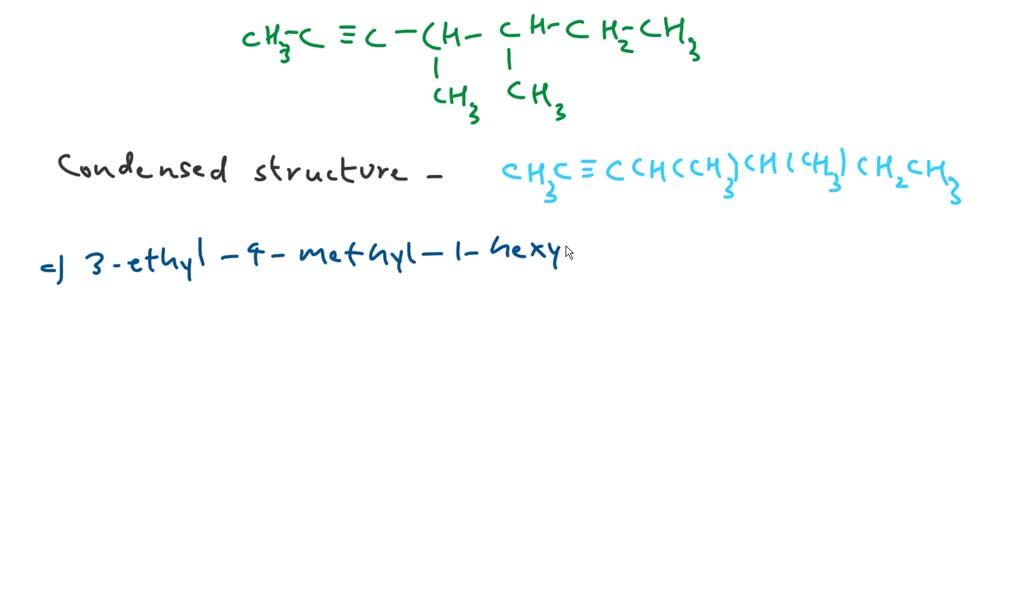 CH₃-C≡C-CH-CH-CH₂-CH₃
CH₃ CH₃
Condensed structure - CH₃C≡CCH(CH₃)CH(CH₃)CH₂CH₃
c) 3-ethyl-4-methyl-1-hexy